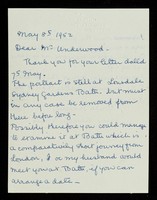 May 8th 1952
Dear Mr. Underwood.
Thank you for your letter dated
7th May.
The portrait is still at Lonsdale
Sydney Gardens Bath, but must
in any case be removed from
there before long.
Possibly therefore you could manage
to examine it at Bath which is
a comparatively short journey from
London, I or my husband would
meet you at Bath, if you can
arrange a date.